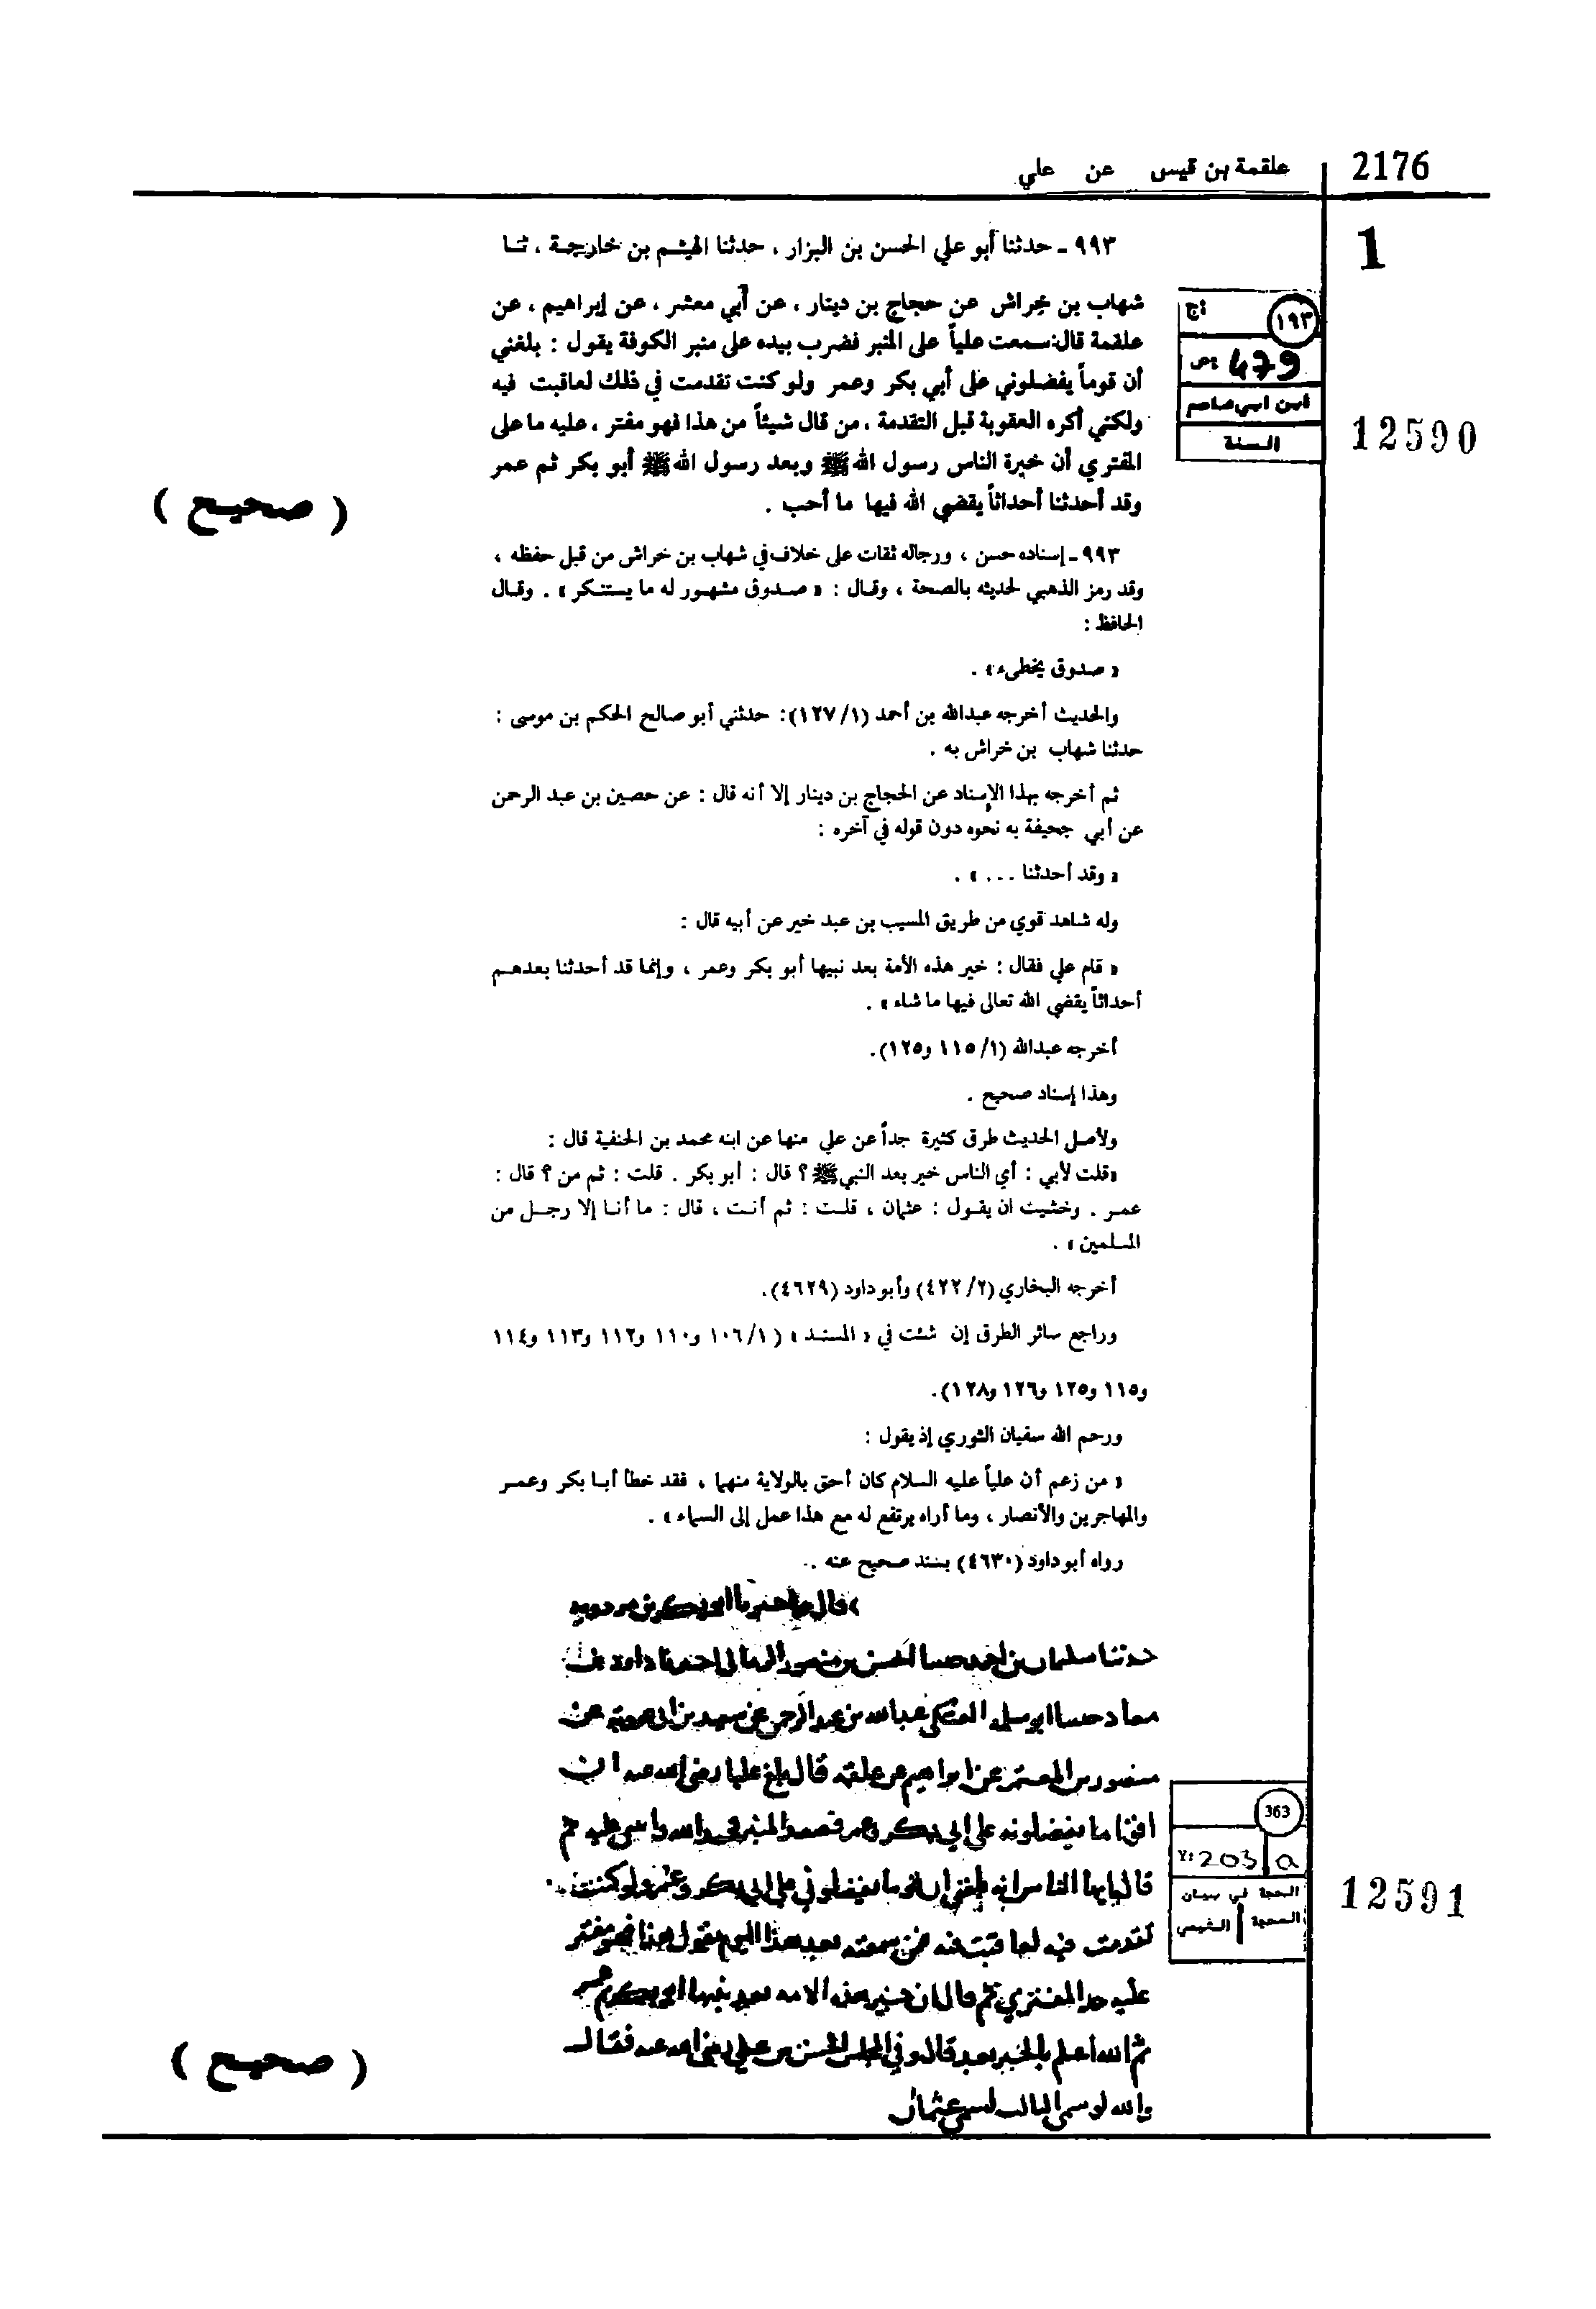 2176
علقمة بن قيس عن علي
1
٩٩٣ ـ حدثنا أبو علي الحسن بن البزار ، حدثنا الهيثم بن خارجة ، ثنا
شهاب بن خراش عن حجاج بن دينار ، عن أبي معشر ، عن إبراهيم ، عن
علقمة قال: سمعت علياً على المنبر فضرب بيده على منبر الكوفة يقول : بلغني
أن قوماً يفضلوني على أبي بكر وعمر ولو كنت تقدمت في ذلك لعاقبت فيه
ولكني أكره العقوبة قبل التقدمة ، من قال شيئاً من هذا فهو مفتر ، عليه ما على
المفتري أن خيرة الناس رسول الله ﷺ وبعد رسول الله ﷺ أبو بكر ثم عمر
وقد أحدثنا أحداثاً يقضي الله فيها ما أحب .
ج:
١٩٣
ص: 479
ابن ابي عاصم
السنة
12590
( صحيح )
٩٩٣ ـ إسناده حسن ، ورجاله ثقات على خلاف في شهاب بن خراش من قبل حفظه ،
وقد رمز الذهبي لحديثه بالصحة ، وقال : « صدوق مشهور له ما يستنكر » . وقال
الحافظ :
« صدوق يخطىء » .
والحديث أخرجه عبدالله بن أحمد (١/ ١٢٧): حدثني أبو صالح الحكم بن موسى :
حدثنا شهاب بن خراش به .
ثم أخرجه بهذا الإسناد عن الحجاج بن دينار إلا أنه قال : عن حصين بن عبد الرحمن
عن أبي جحيفة به نحوه دون قوله في آخره :
« وقد أحدثنا ... » .
وله شاهد قوي من طريق المسيب بن عبد خير عن أبيه قال :
« قام علي فقال : خير هذه الأمة بعد نبيها أبو بكر وعمر ، وإنما قد أحدثنا بعدهم
أحداثاً يقضي الله تعالى فيها ما شاء » .
أخرجه عبدالله (١/ ١١٥ و١٢٥).
وهذا إسناد صحيح .
ولأصل الحديث طرق كثيرة جداً عن علي منها عن ابنه محمد بن الحنفية قال :
«قلت لأبي : أي الناس خير بعد النبي ﷺ ؟ قال : أبو بكر . قلت : ثم من ؟ قال :
عمر . وخشيت ان يقول : عثمان ، قلت : ثم أنت ، قال : ما أنا إلا رجل من
المسلمين » .
أخرجه البخاري (٢/ ٤٢٢) وأبو داود (٤٦٢٩).
وراجع سائر الطرق إن شئت في « المسند » (١/ ١٠٦ و١١٠ و١١٢ و١١٣ و١١٤
و١١٥ و١٢٥ و١٢٦ و١٢٨).
ورحم الله سفيان الثوري إذ يقول :
« من زعم أن علياً عليه السلام كان أحق بالولاية منهما ، فقد خطأ أبا بكر وعمر
والمهاجرين والأنصار ، وما أراه يرتفع له مع هذا عمل إلى السماء » .
رواه أبو داود (٤٦٣٠) بسند صحيح عنه .
قال واخبرنا ابو بكر بن مردويه
حدثنا سليمان بن احمد حدثنا الحسن بن منصور الرماني حدثنا داود بن
معاذ حدثنا ابو سلمه العتكي عبدالله بن عبد الرحمن عن سعيد بن ابي عروبة عن
منصور بن المعتمر عن ابراهيم عن علقمه قال بلغ عليا رضي الله عنه ان
اقواما يفضلونه على ابي بكر وعمر فصعد المنبر فحمد الله واثنى عليه ثم
قال يايها الناس انه بلغني ان قوما يفضلوني على ابي بكر وعمر ولو كنت
تقدمت فيه لعاقبت فيه فمن سمعته بعد هذا اليوم يقول هذا فهو مفتر
عليه حد المفتري ثم قال ان خير هذه الامه بعد نبيها ابو بكر ثم عمر
ثم الله اعلم بالخير بعد قال وفي المجلس الحسن بن علي رضي الله عنه فقال
والله لو سمى الثالث لسمى عثمان
363
203 a
الحجة في بيان
المحجة
التيمي
12591
( صحيح )